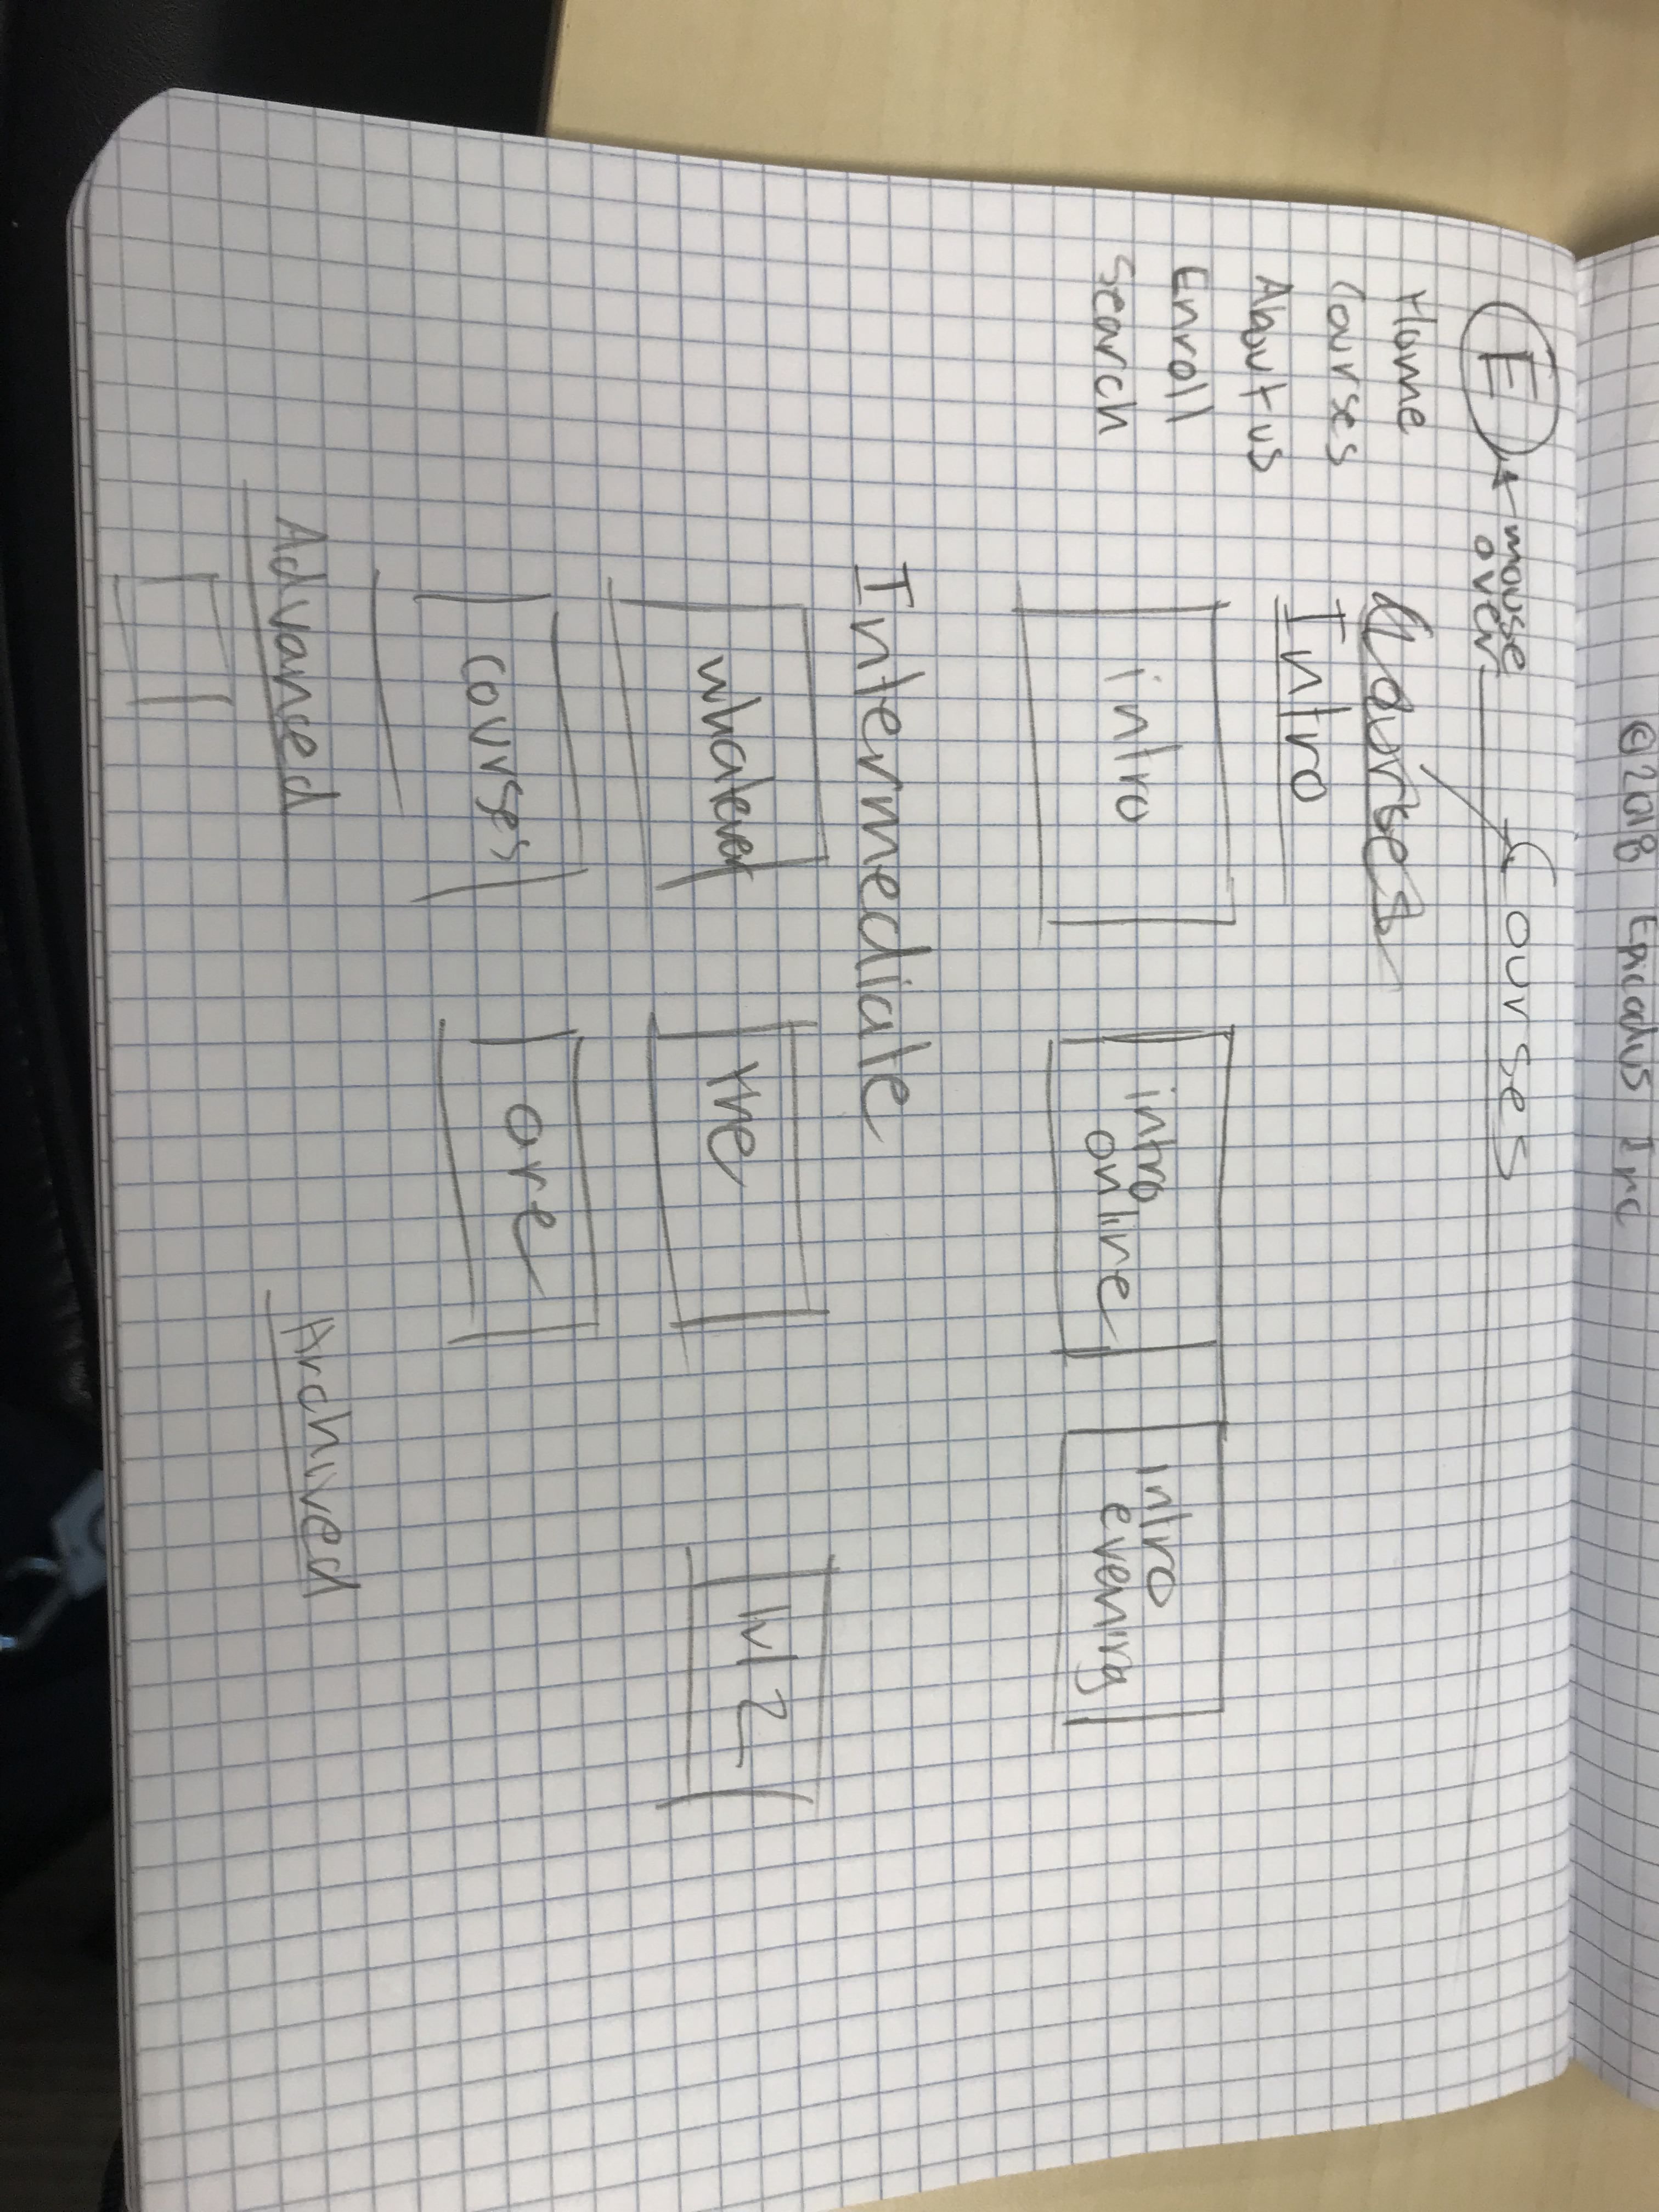 ©2018 Epicodus Inc
E
mouse
over
Courses
Home
Courses
About us
Enroll
Search
Courses
Intro
intro
intro
online
intro
evening
Intermediate
whatever
the
lvl 2
courses
are
Advanced
Archived